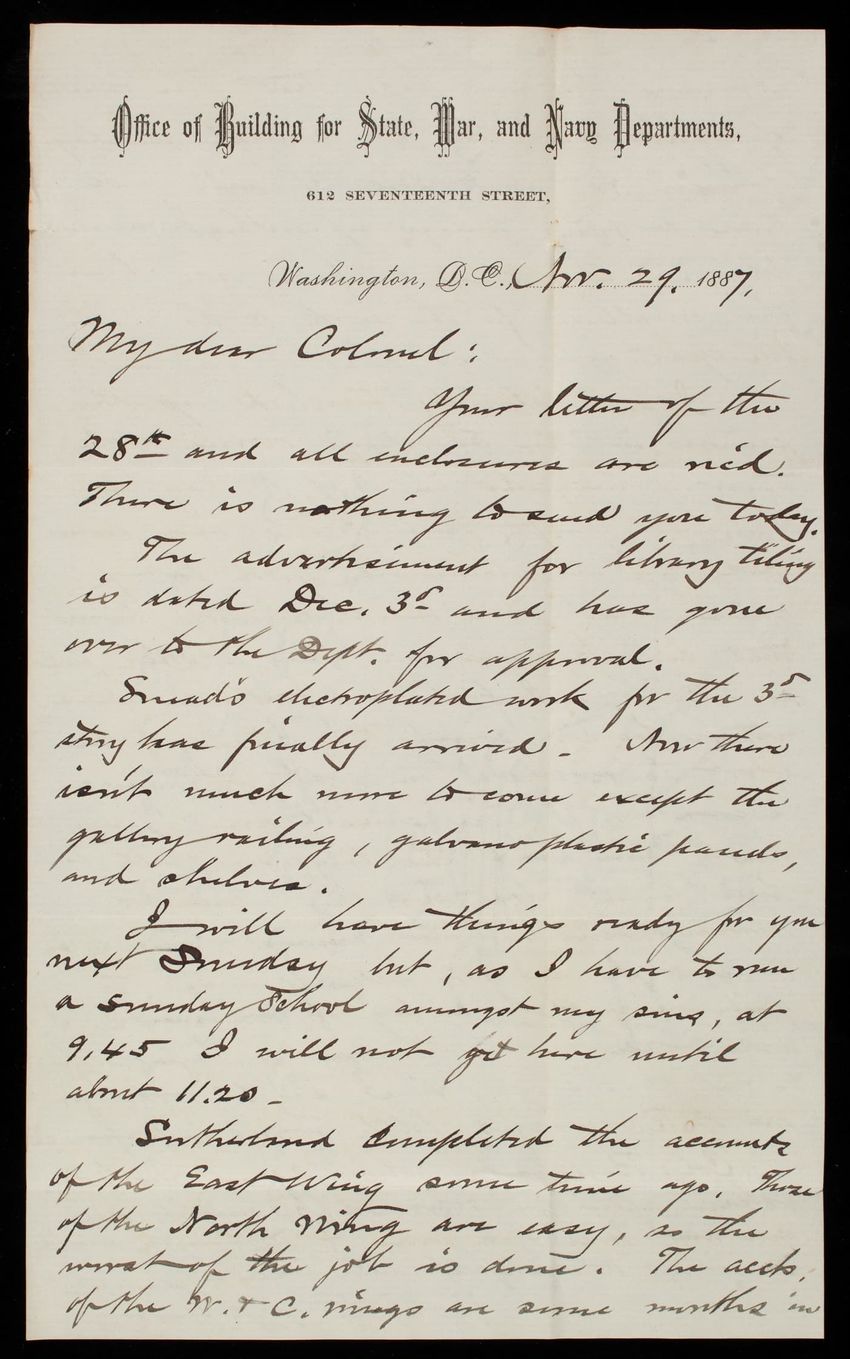 Office of Building for State, War, and Navy Departments,
612 SEVENTEENTH STREET,
Washington, D. C., Nov. 29. 1887,
My dear Colonel:
Your letter of the
28th and all enclosures are rec'd.
There is nothing to send you today.
The advertisement for library tiling
is dated Dec. 3d and has gone
over to the Dept. for approval.
Snead's electroplated work for the 3d
story has finally arrived - Now there
isn't much more to come except the
gallery railing, galvanoplastic panels,
and shelves.
I will have things ready for you
next Sunday but, as I have to run
a Sunday School amongst my sins, at
9.45 I will not get here until
about 11.20 -
Sutherland completed the accounts
of the East Wing some time ago. Those
of the North Wing are easy, so the
worst of the job is done. The accts.
of the W. & C. wings are some months in